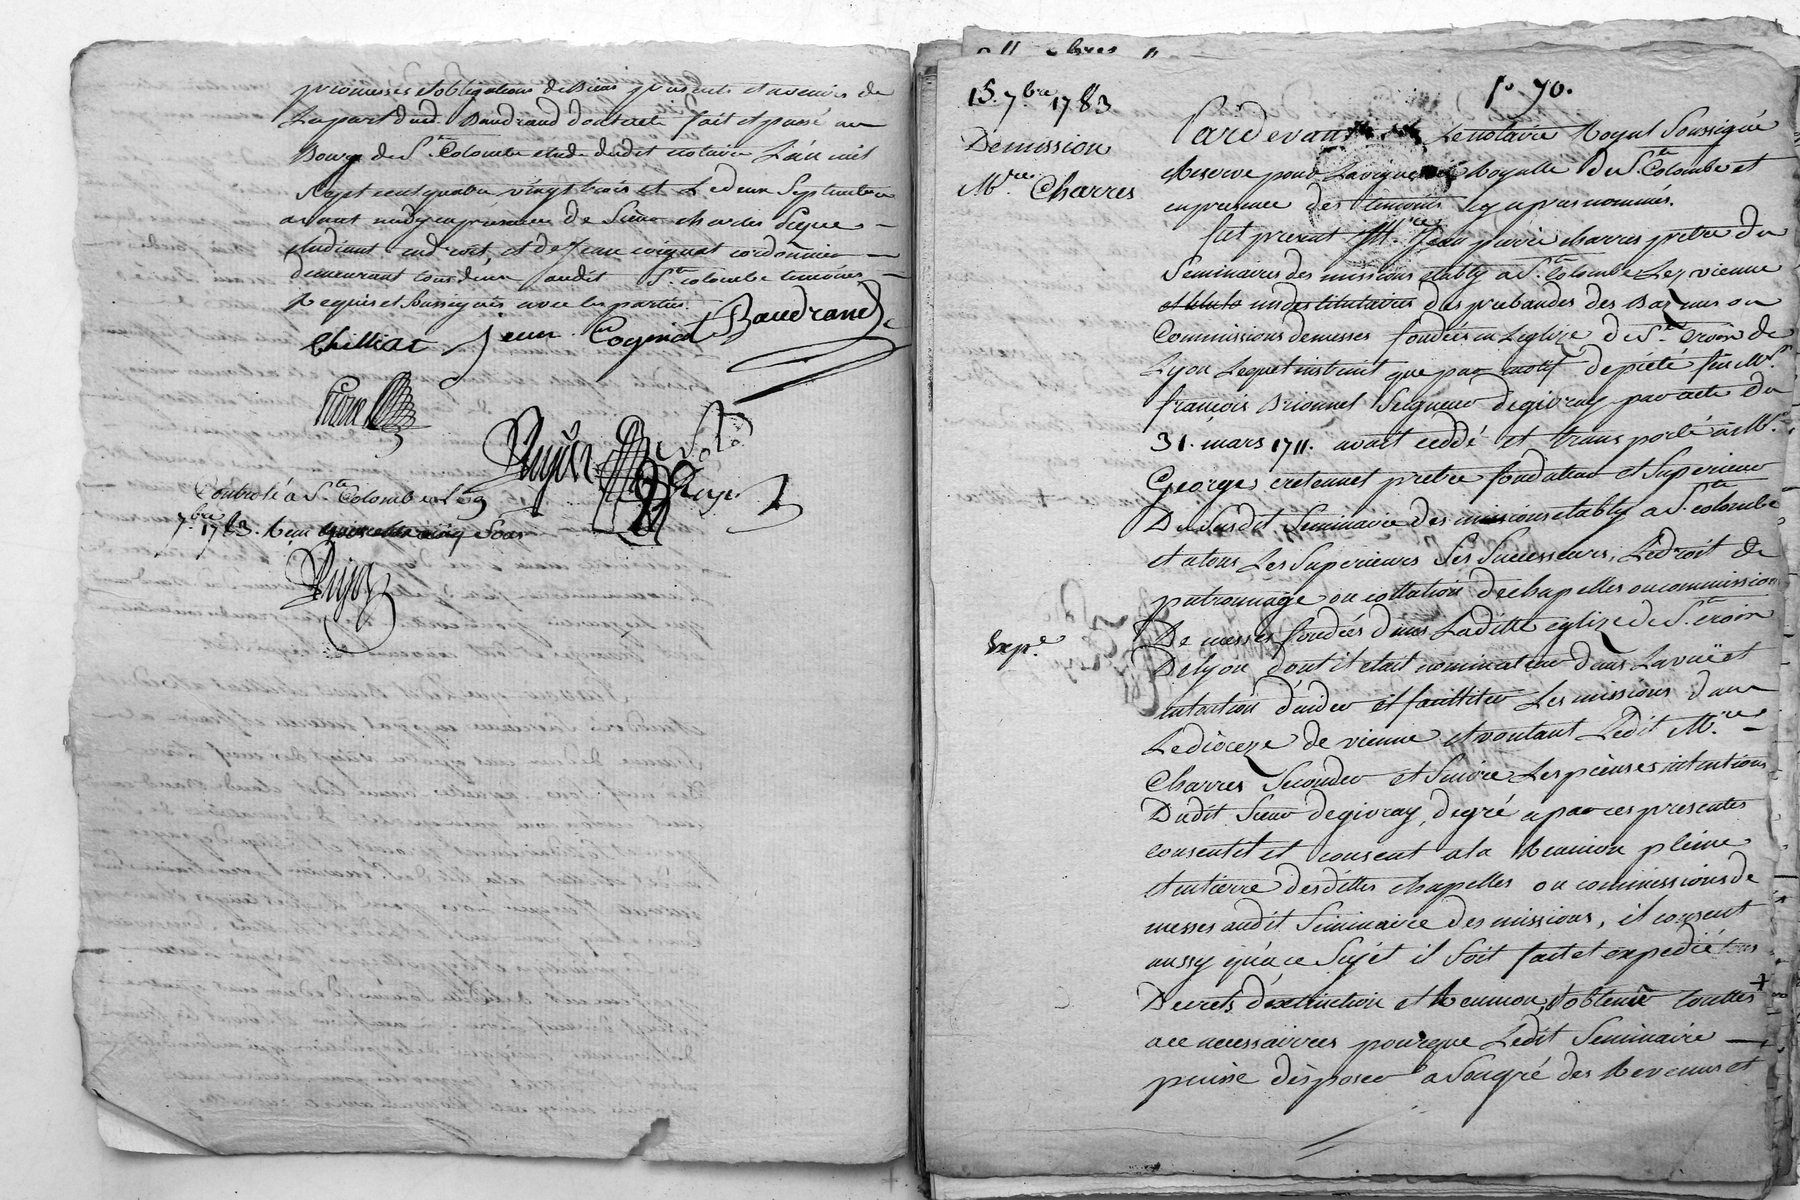 promesses et obligations de Biens presents et avenir de
La part dud. Baudrand dont acte fait et passé au
Bourg de Ste. Colombe etude dudit notaire L'an mil
sept cent quatre vingt trois et Le deux Septembre
avant midy en presence de Sieur charles
etudiant en droit, et de Jean coignat cordonnier
demeurant tous deux audit Ste. colombe temoins
Requis et Soussignés avec les parties
Chilliat Jean Cogniat Baudrand
Controlé a Ste. Colombe Le 9
7.bre 1783. Reçu Sous
15. 7.bre 1783
Demission
M.re Charres
Exp.e
f.o 70.
Pardevant Le notaire Royal Soussigné
Reservé pour La viguerie Royalle de Ste. Colombe et
en presence des temoins cy apres nommés.
fut present M.re Jean pierre charres pretre du
Seminaires des missions etably a Ste. Colombe Lez vienne
un des titulaires des prebandes des ou
Commissions de messes fondées en L'eglize de Ste. Croix de
Lyon Lequel instruit que par motif de pieté feu M.r
françois Brionnel Seigneur de givray par acte du
31. mars 1711. avoit ceddé et transporté a M.re
George cretenet pretre fondateur et Superieur
Du Susdit Seminaire des missions etably a Ste. colombe
et a tous Les Superieurs Ses Successeurs, Le droit de
patronnage ou collation de chapelles ou commission
De messes fondées dans Laditte eglize de Ste. croix
De lyon dont il etait nominateur dans La vuë et
intention d'aider et faciliter Les missions dans
Le dioceze de vienne et voulant Ledit M.re
Charres Seconder et Suivre Les pieuses intentions
Dudit Sieur de givray, de gré a par ces presentes
consenti et consent a la Reunion pleine
et entierre desdittes chapelles ou commissions de
messes audit Seminaire des missions, il consent
aussy qu'a ce Sujet il Soit fait et expedié tous
Decrets d'extinction et Reunion, d'obtenir touttes +
a ce necessairres pourque Ledit Seminaire
puisse disposer a Son gré des Revenus et